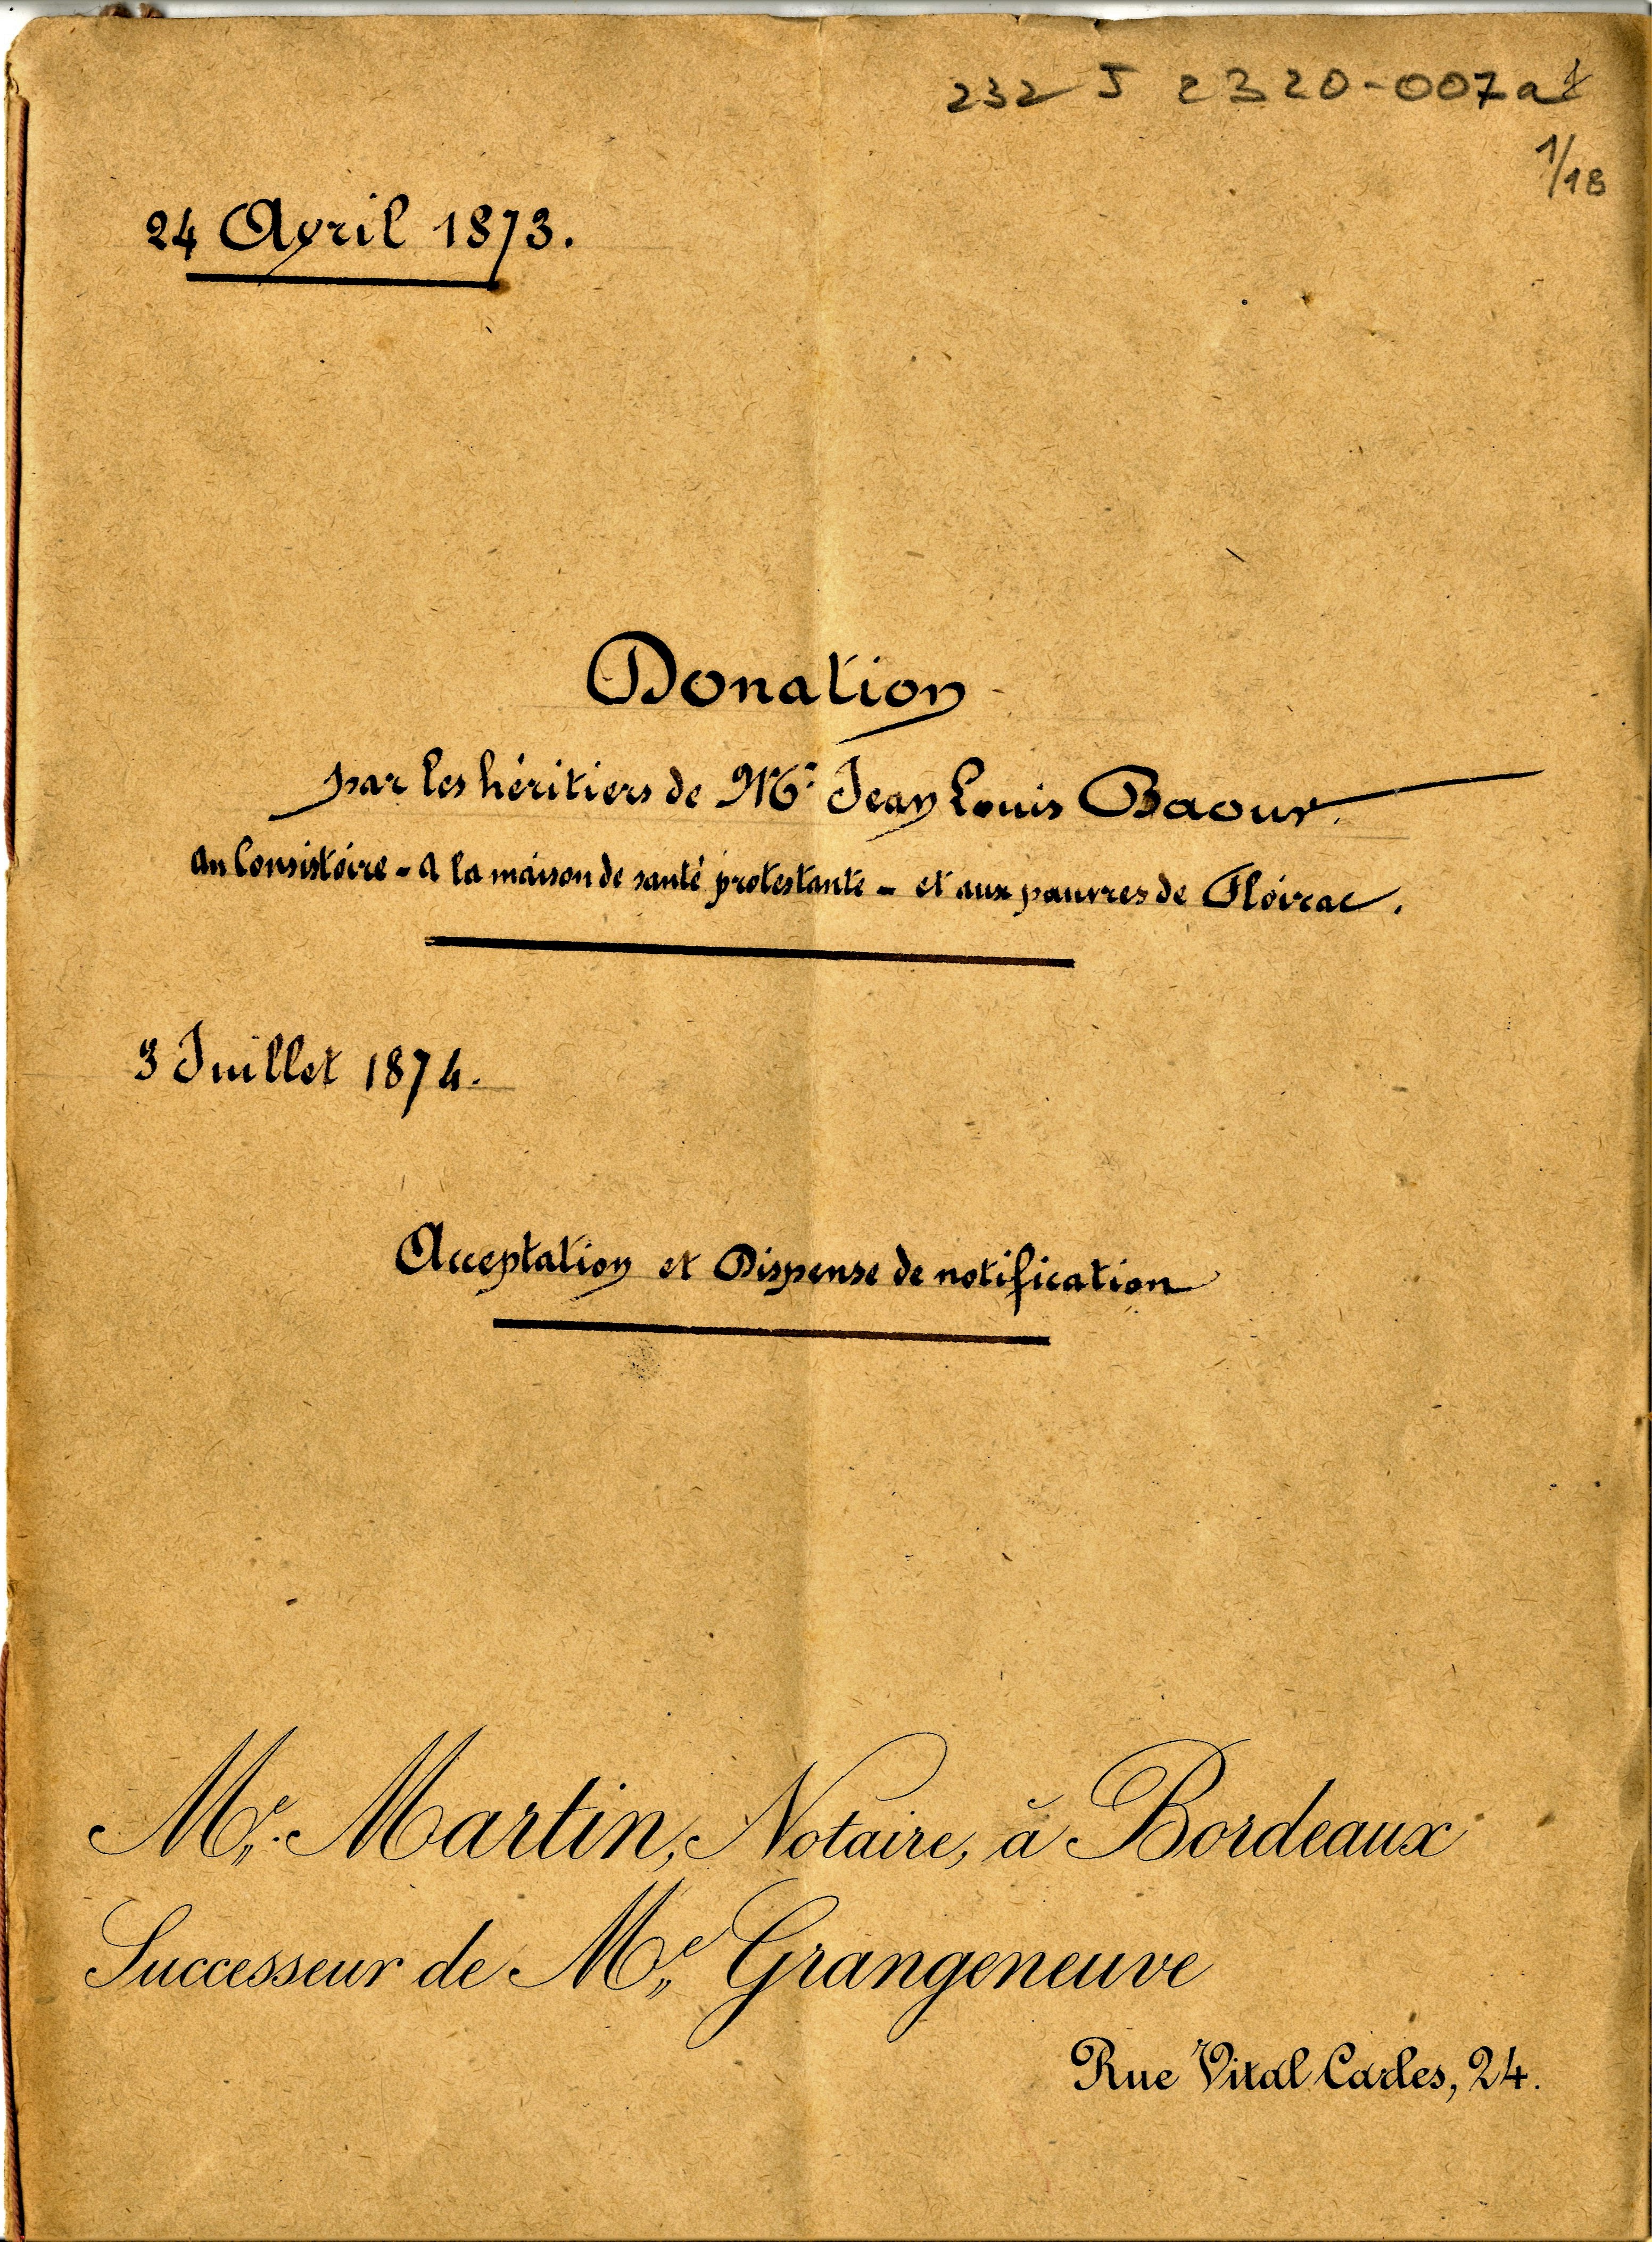 232 J 2320-007a
1/18
24 Avril 1873.
Donation
par les héritiers de Mr Jean Louis Baour.
au Consistoire - à la maison de santé protestante - et aux pauvres de Floirac.
3 Juillet 1874.
Acceptation et Dispense de notification
Me. Martin, Notaire, à Bordeaux
Successeur de Me Grangeneuve
Rue Vital Carles, 24.